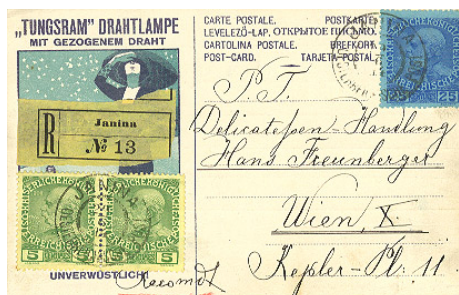 „TUNGSRAM” DRAHTLAMPE
MIT GEZOGENEM DRAHT
R
Janina
№ 13
5
5
UNVERWÜSTLICH!
Recomdt
CARTE POSTALE. POSTKARTE
LEVELEZŐ-LAP. ОТКРЫТОЕ ПИСЬМО.
CARTOLINA POSTALE. BREFKORT.
POST-CARD. TARJETA POSTAL.
25
25
P. T.
Delicatessen-Handlung
Hans Freunberger
Wien, X.
Kepler-Pl: 11